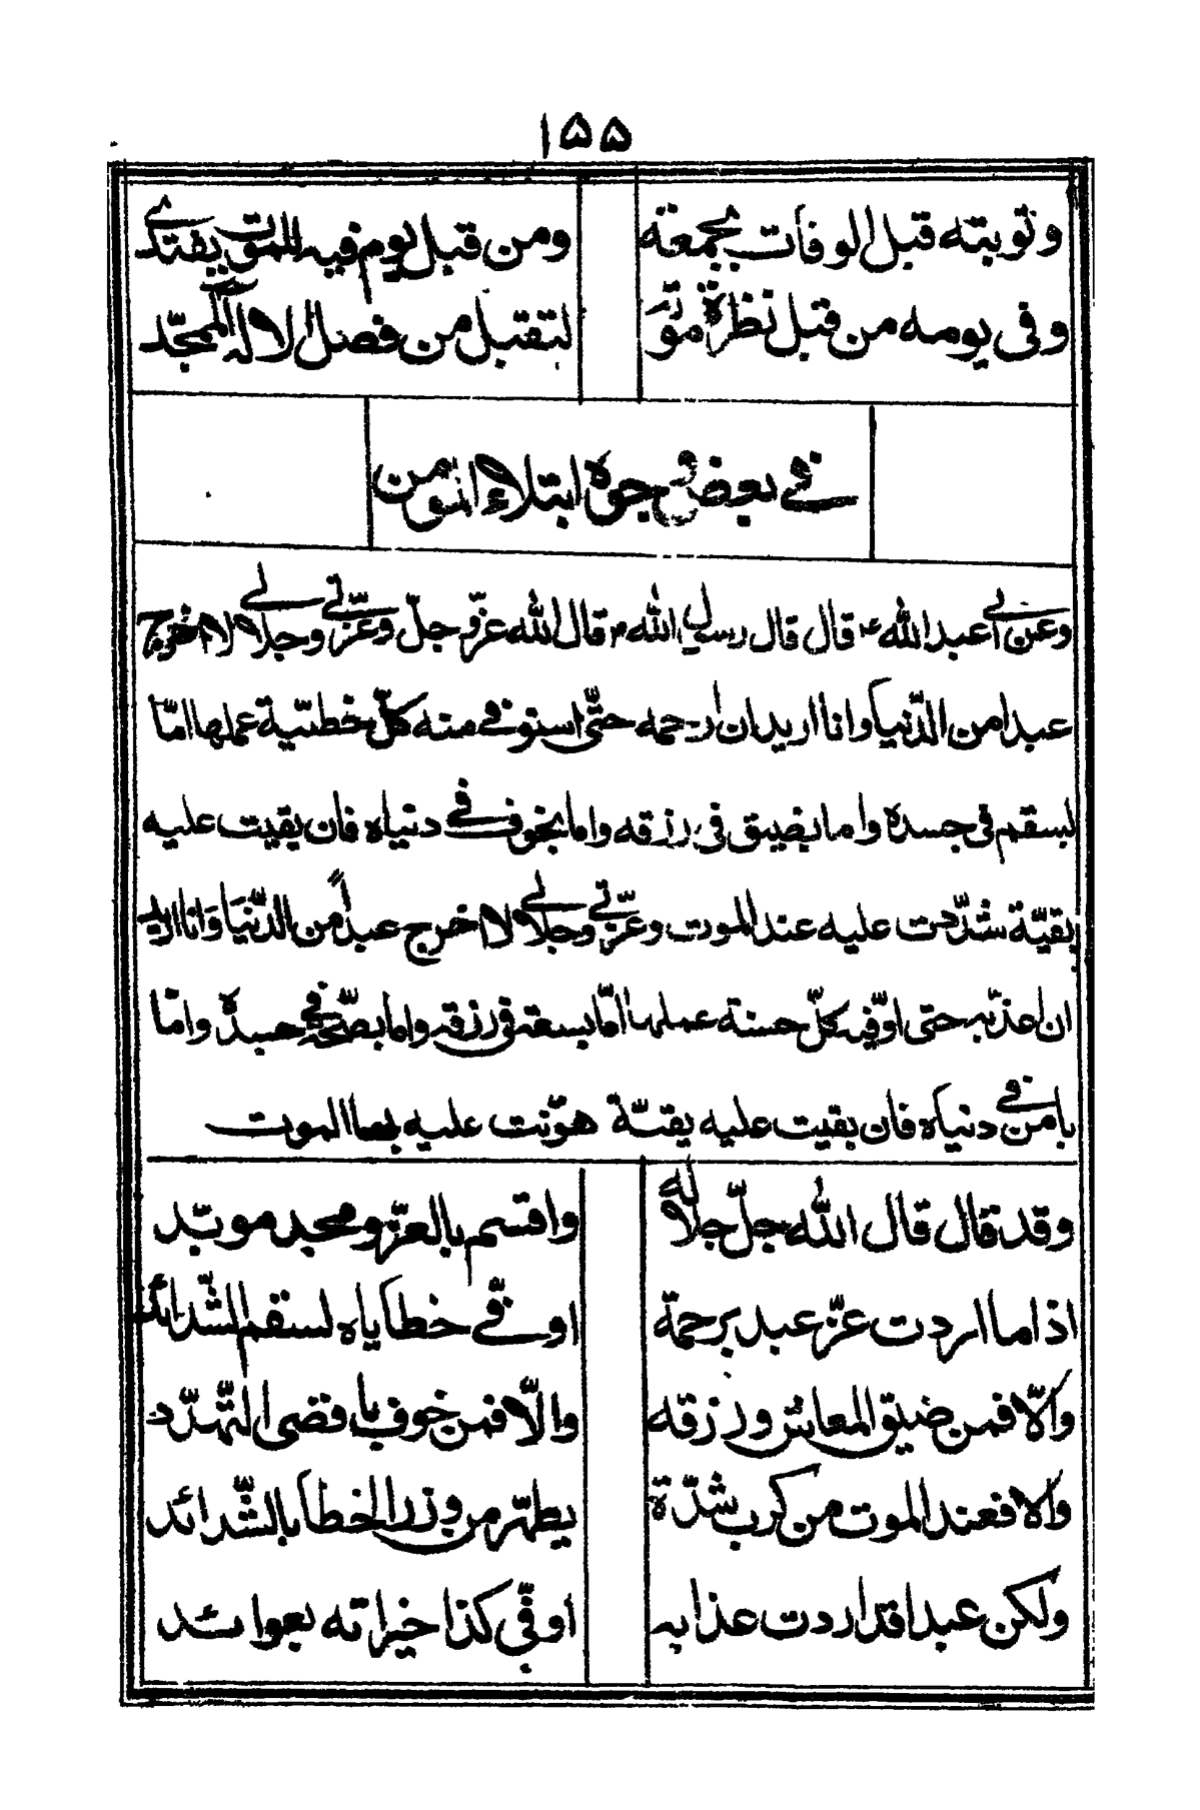 ١٥٥
وتوبته قبل الوفات بجمعة ومن قبل يوم فيه للموت يفتدى
وفى يومه من قبل نظرة لتقبل من فضل الاله الممجّد
فى بعض وجوه ابتلاء المؤمن
وعن أبى عبد الله ع قال قال رسول الله م قال الله عزّ و جلّ وعزّتى وجلالى لا اخرج
عبدا من الدّنيا وانا اريد ان ارحمه حتّى استوفى منه كلّ خطيئة عملها امّا
بسقم فى جسده واما بضيق فى رزقه واما بخوف فى دنياه فان بقيت عليه
بقيّة شدّدت عليه عند الموت وعزّتى وجلالى لا اخرج عبداً من الدّنيا وانا اريد
ان اعذّبه حتى اوفّيه كلّ حسنة عملها امّا بسعة فى رزقه واما بصحّة فى جسده وامّا
بامن فى دنياه فان بقيت عليه بقيّة هوّنت عليه بها الموت
وقد قال قال الله جلّ جلاله واقسم بالعزّ ومجد موبّد
اذا ما اردت عزّ عبد برحمة اوفّى خطاياه لسقم الشّدائد
والّا فمن ضيق المعاش ورزقه والّا فمن خوف باقصى التّهدّد
والا فعند الموت من كرب شدّة يطهّر من وزر الخطا بالشّدائد
ولكن عبدا قد اردت عذابه اوفّى كذا خيراته بعوائد